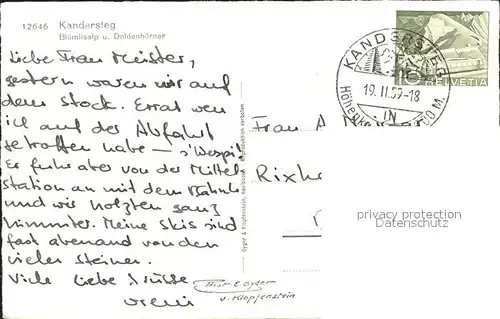 12646 Kandersteg
Blümlisalp u. Doldenhörner
Liebe Frau Meister,
gestern waren wir auf
dem Stock. Errat wen
ich auf der Abfahrt
getroffen habe – s'Wespi
Er fuhr aber von der Mittel
station an mit dem Bähnli
und wir holzten ganz
hinunter. Meine Skis sind
fast abenand von den
vielen Steinen.
Viele liebe Grüsse
Vreni
KANDERSTEG
19.II.59-18
IN
00 M.
10
HELVETIA
Frau
Rixh
privacy protection
Gyger & Klopfenstein, Adelboden Reproduktion verboten
Phot E Gyger
u. Klopfenstein